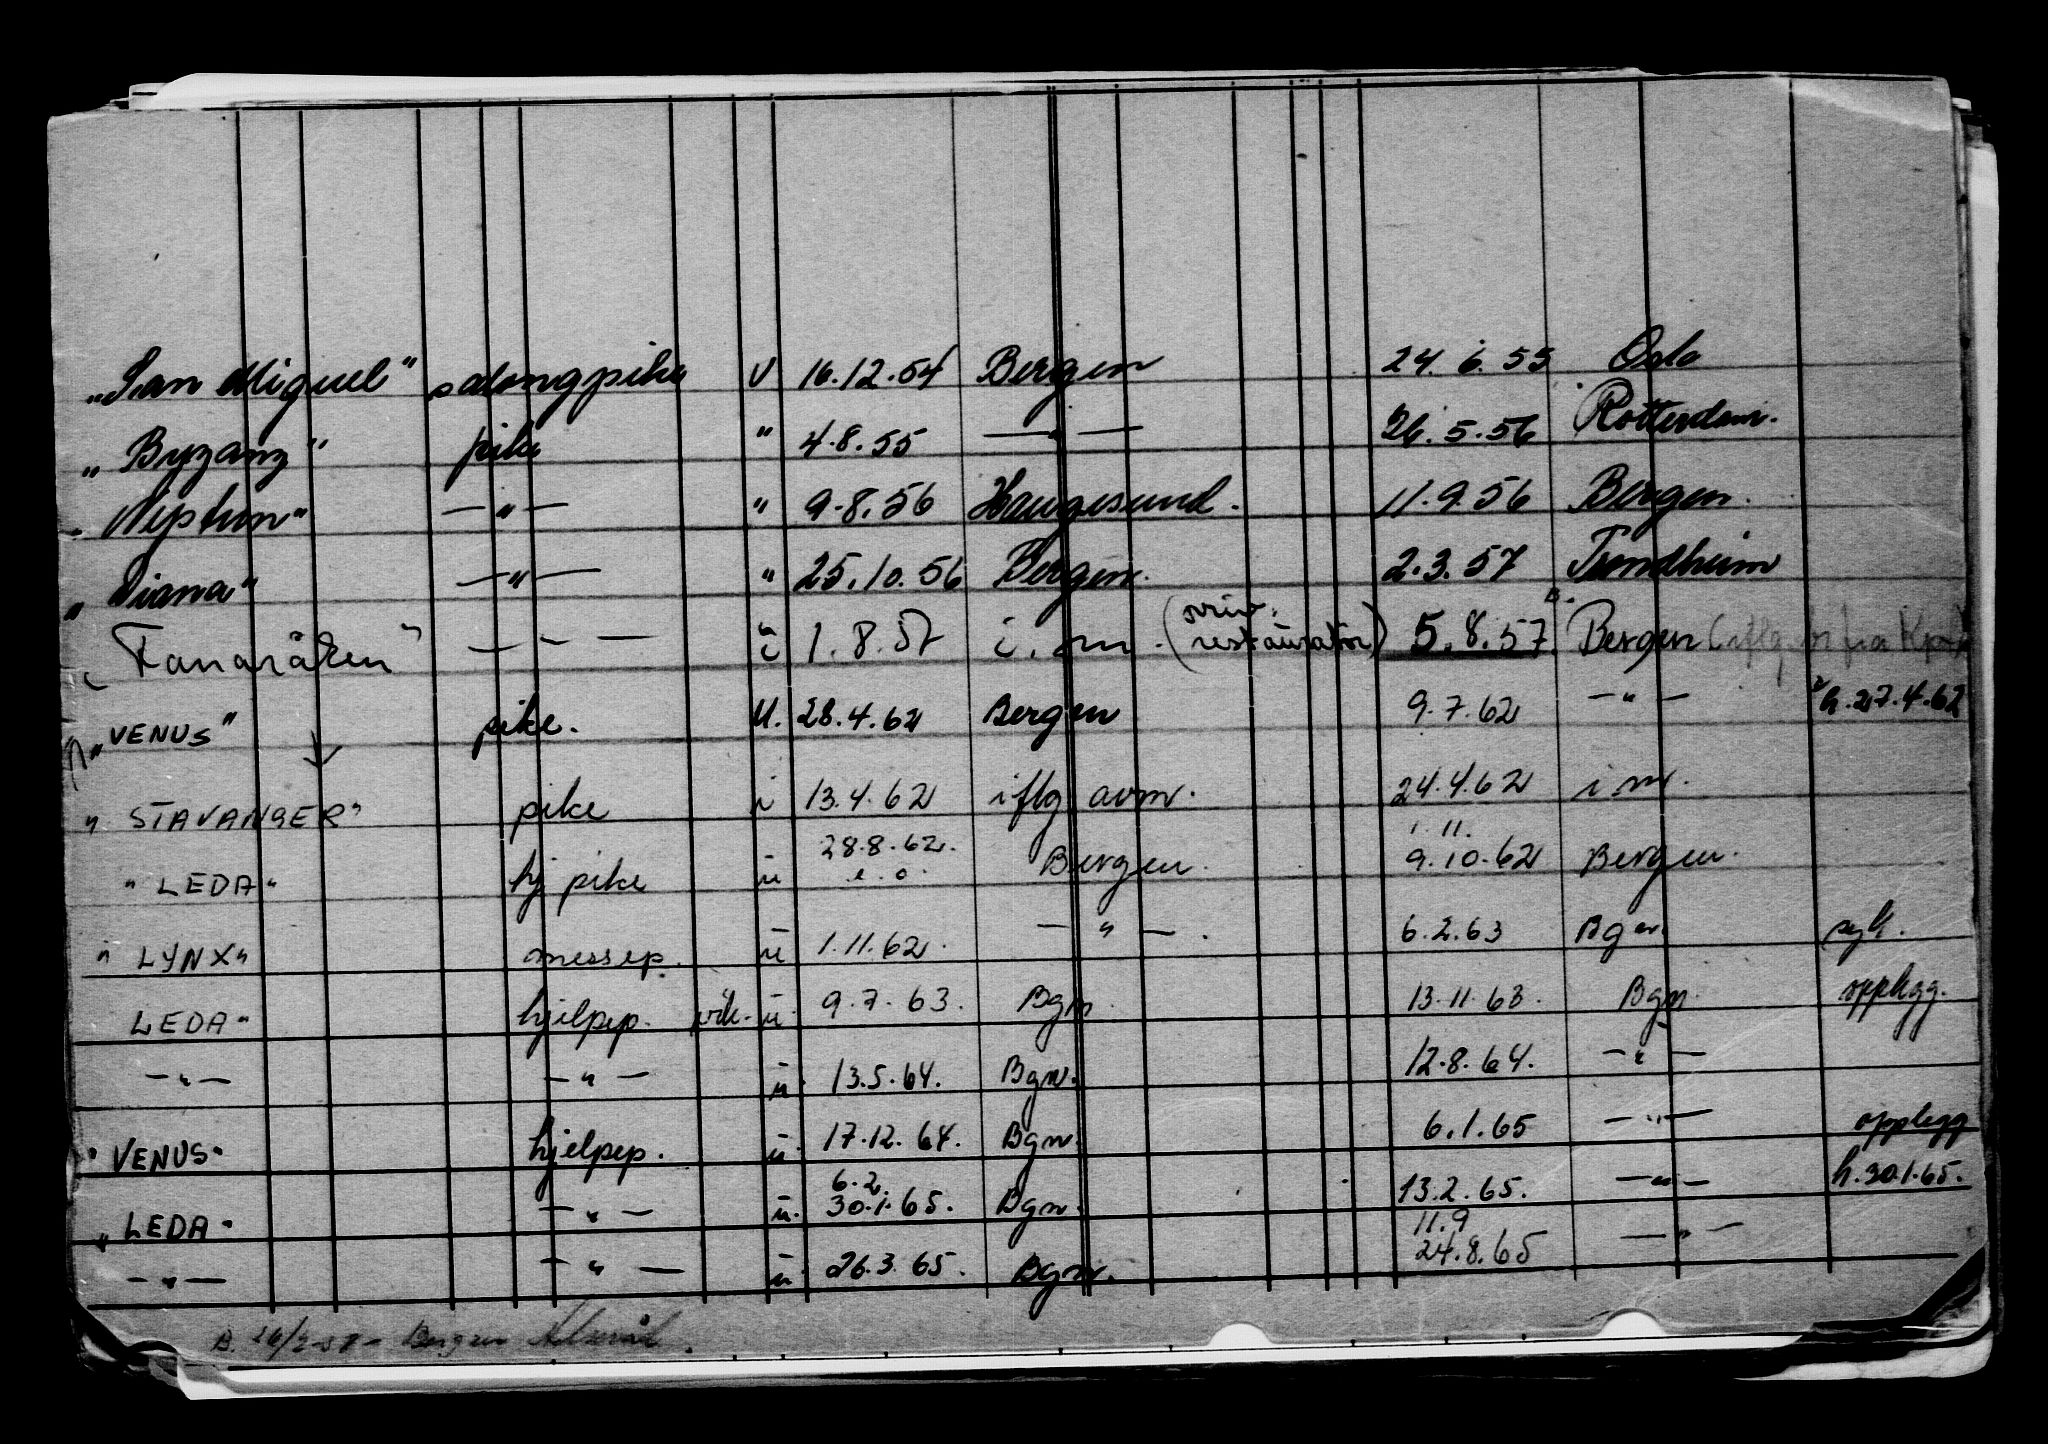 "San Miguel" salongpike U 16.12.54 Bergen 24.6.55 Oslo
"Byzanz" pike " 4.8.55 —"— 26.5.56 Rotterdam.
"Neptun" —"— " 9.8.56 Haugesund. 11.9.56 Bergen.
"Diana" —"— " 25.10.56 Bergen. 2.3.57 Trondheim
"Fanaråken" —"— i 1.8.57 i.m. (priv. restauratør) 5.8.57 Bergen
"VENUS" pike. U. 28.4.62 Bergen 9.7.62 —"— h.27.4.62
"STAVANGER" pike i 13.4.62 iflg avm. 24.4.62 i m.
1.11.
"LEDA" hj pike u 28.8.62. e.o. Bergen. 9.10.62 Bergen.
"LYNX" messep. u 1.11.62. —"—. 6.2.63 Bgn. syk.
LEDA" hjelpep. vik. u. 9.7.63. Bgn. 13.11.63. Bgn. opplegg.
—"— —"— u. 13.5.64. Bgn. 12.8.64. —"—
"VENUS" hjelpep. u. 17.12.64. Bgn. 6.1.65 —"— opplegg
6.2.
"LEDA" —"— u. 30.1.65. Bgn. 13.2.65. —"— h.30.1.65.
11.9
—"— —"— u. 26.3.65. Bgn. 24.8.65 —"—
B. Bergen